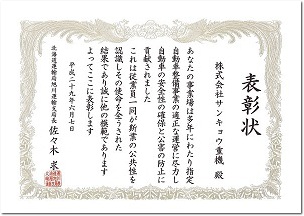 表彰状
株式会社サンキョウ重機 殿
あなたの事業場は多年にわたり指定
自動車整備事業の適正な運営に尽力し
自動車の安全性の確保と公害の防止に
貢献されました
これは従業員一同が斯業の公共性を
認識しその使命を全うされた
結果であり誠に他の模範であります
よってここに表彰します
平成二十九年六月七日
北海道運輸局旭川運輸支局長 佐々木 求